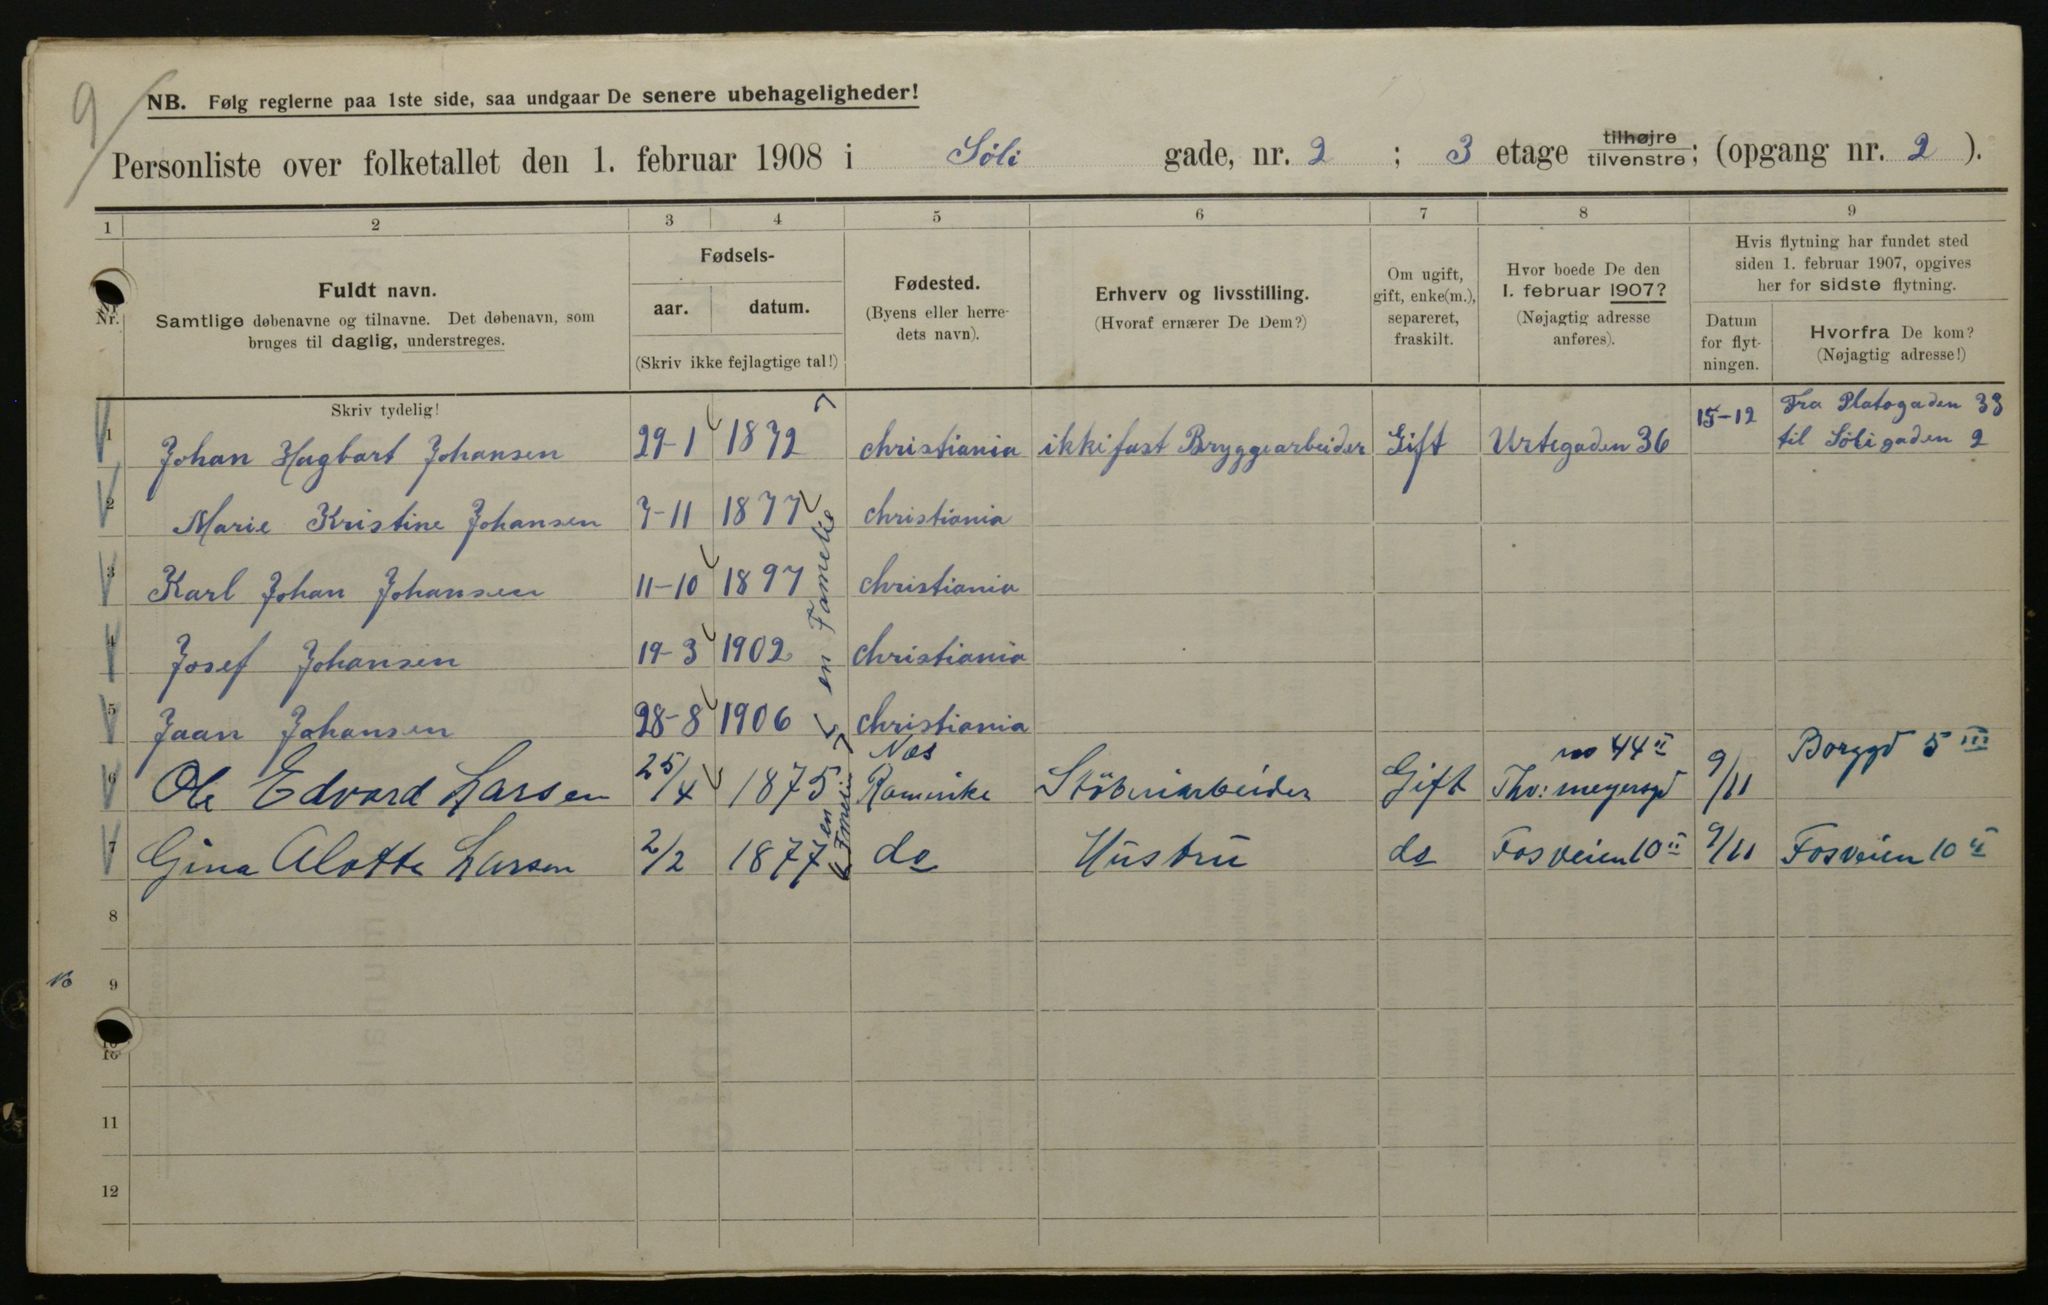 9
NB. Følg reglerne paa 1ste side, saa undgaar De senere ubehageligheder!
Personliste over folketallet den 1. februar 1908 i Søli gade, nr. 2 ; 3 etage tilhøjre tilvenstre; (opgang nr. 2 ).
1 2 3 4 5 6 7 8 9
Nr.
Fuldt navn.
Samtlige døbenavne og tilnavne. Det døbenavn, som
bruges til daglig, understreges.
Skriv tydelig!
Fødsels-
aar. datum.
(Skriv ikke fejlagtige tal!)
Fødested.
(Byens eller herre-
dets navn).
Erhverv og livsstilling.
(Hvoraf ernærer De Dem?)
Om ugift,
gift, enke(m.),
separeret,
fraskilt.
Hvor boede De den
1. februar 1907?
(Nøjagtig adresse
anføres).
Hvis flytning har fundet sted
siden 1. februar 1907, opgives
her for sidste flytning.
Datum
for flyt-
ningen.
Hvorfra De kom?
(Nøjagtig adresse!)
1 Johan Hagbart Johansen 29-1 1872 christiania ikki fast Bryggearbeider Gift Urtegaden 36 15-12 Fra Platogaden 33
til Søligaden 2
2 Marie Kristine Johansen 7-11 1877 christiania
3 Karl Johan Johansen 11-10 1897 christiania
4 Josef Johansen 19-3 1902 christiania
5 Jaan Johansen 28-8 1906 christiania
en Famelie
6 Ole Edvard Larsen 25/4 1875 Næs Romerike Støberiarbeider Gift Thv: meyersgd no 44 II 9/11 Borggd 5 III
7 Gina Alotte Larsen 2/2 1877 do Hustru do Fosveien 10 II 9/11 Fosveien 10 II
en
8
9
10
11
12